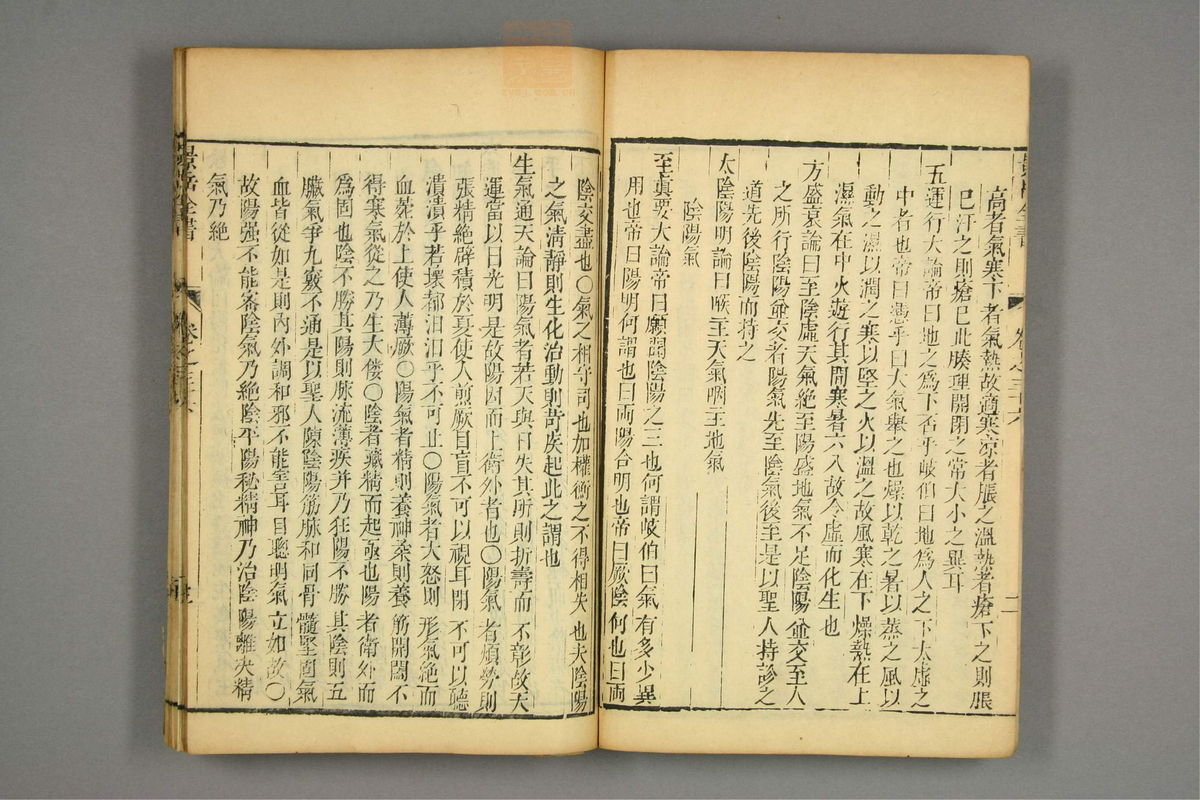 高者氣寒下者氣熱故適寒凉者脹之溫熱者瘡下之則脹
已汗之則瘡已此腠理開閉之常大小之異耳
五運行大論帝曰地之爲下否乎岐伯曰地爲人之下太虛之
中者也帝曰憑乎曰大氣舉之也燥以乾之暑以蒸之風以
動之濕以潤之寒以堅之火以溫之故風寒在下燥熱在上
濕氣在中火遊行其間寒暑六入故令虛而化生也
方盛衰論曰至陰虛天氣絶至陽盛地氣不足陰陽並交至人
之所行陰陽並交者陽氣先至陰氣後至是以聖人持診之
道先後陰陽而持之
太陰陽明論曰喉主天氣咽主地氣
陰陽氣
至眞要大論帝曰願聞陰陽之三也何謂岐伯曰氣有多少異
用也帝曰陽明何謂也曰兩陽合明也帝曰厥陰何也曰兩
陰交盡也○氣之相守司也加權衡之不得相失也夫陰陽
之氣清靜則生化治動則苛疾起此之謂也
生氣通天論曰陽氣者若天與日失其所則折壽而不彰故天
運當以日光明是故陽因而上衛外者也○陽氣者煩勞則
張精絶辟積於夏使人煎厥目盲不可以視耳閉不可以聽
潰潰乎若壞都汨汨乎不可止○陽氣者大怒則形氣絶而
血菀於上使人薄厥○陽氣者精則養神柔則養筋開闔不
得寒氣從之乃生大僂○陰者藏精而起亟也陽者衛外而
爲固也陰不勝其陽則脉流薄疾并乃狂陽不勝其陰則五
臟氣爭九竅不通是以聖人陳陰陽筋脉和同骨髓堅固氣
血皆從如是則內外調和邪不能害耳目聰明氣立如故○
故陽强不能密陰氣乃絶陰平陽秘精神乃治陰陽離决精
氣乃絶
景岳全書
卷之三